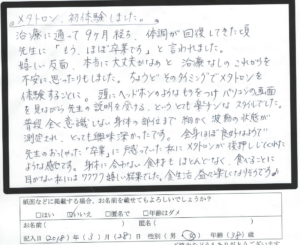 "メタトロン、初体験しました。"
治療に通って9ヶ月経ち、体調が回復してきた頃
先生に「もう、ほぼ卒業です」と言われました。
嬉しい反面、本当に大丈夫かなぁと治療なしのこれからを
不安に思ったりもしました。ちょうどそのタイミングでメタトロンを
体験することに。頭にヘッドホンのようなものをつけパソコンの画面
を見ながら先生の説明を伺う、というとても楽チンなスタイルでした。
普段全く意識しない身体の部位まで細かく波動の状態が
測定され、とっても興味深かったです。全身ほぼ良好なようで
先生のおっしゃった「卒業」に戸惑っていた私にメタトロンが後押ししてくれた
ような感じです。身体に合わない食材もほとんどなく、食べることに
目がない私にはワクワク嬉しい結果でした。食生活、益々楽しくなりそうです♪
紙面などに掲載する場合、お名前を載せてもよろしいでしょうか?
□はい ☑いいえ □匿名で □年齢はダメ
お名前
記入日(2018)年(5)月(28)日 性別(男・女) 年齢(38)歳